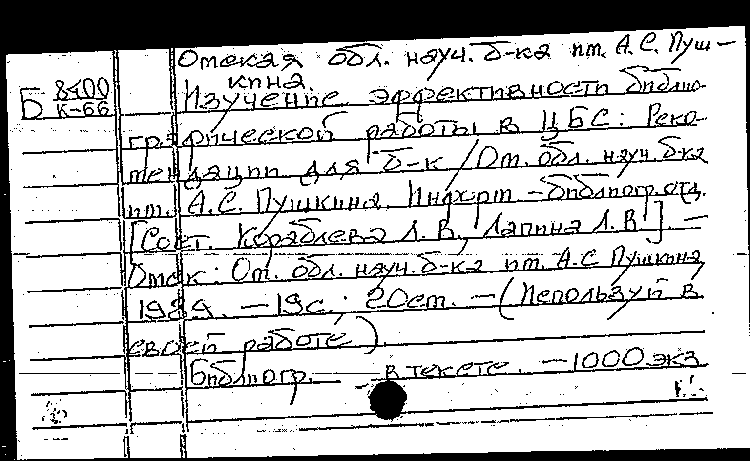 Омская обл. науч. б-ка им. А.С. Пуш-
кина.
Б 8400 К-66
Изучение эффективности библио-
графической работы в ЦБС: Реко-
мендации для б-к / Ом. обл. науч. б-ка
им. А.С. Пушкина. Информ.-библиогр. отд.
[Сост. Кораблева Л.В., Лапина Л.В.]. —
Омск: Ом. обл. науч. б-ка им. А.С Пушкина,
1989. — 19 с.; 20 см. — (Используй в
своей работе).
Библиогр. в тексте. — 1000 экз